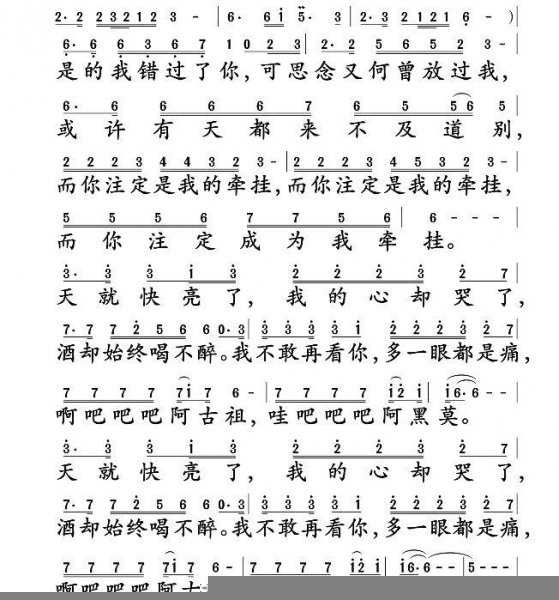 2· 2 2321 2 3 - | 6· 6i 5· 3 | 2· 2 2321 6 - )
6· 6 6 3 6 7 1 0 2 3 | 3· 2 5 6 5 2 3 - |
是的我错过了你,可思念又何曾放过我,
6· 6 6 6 6 7 6 5 5 6 5 |
或许有天都来不及道别,
2 2 2 3 4 4 3 2 3 - | 2 2 2 3 4 5 3 2 3 - |
而你注定是我的牵挂,而你注定是我的牵挂,
5 5 5 6 7 7 5 6 | 6 - - - |
而你注定成为我牵挂。
3· 3 3 i 3 2 2 2 3 2 7
天就快亮了,我的心却哭了,
7· 7 7 2 5 6 6 0· 3 | 3 3 3 3 i 2 2 2 3 2 7 |
酒却始终喝不醉。我不敢再看你,多一眼都是痛,
7 7 7 7 7i 7 6 - | 7 7 7 7 7 i2 i | i6· 6 - - |
啊吧吧吧阿古祖,哇吧吧吧阿黑莫。
3· 3 3 i 3 2 2 2 3 2 7
天就快亮了,我的心却哭了,
7· 7 7 2 5 6 6 0· 3 | 3 3 3 3 i 2 2 2 3 2 7 |
酒却始终喝不醉。我不敢再看你,多一眼都是痛,
7 7 7 7 7i 7 6 - | 7 7 7 7 7 i2 i | i6 6 - - | 5 - - - |
啊吧吧吧阿古